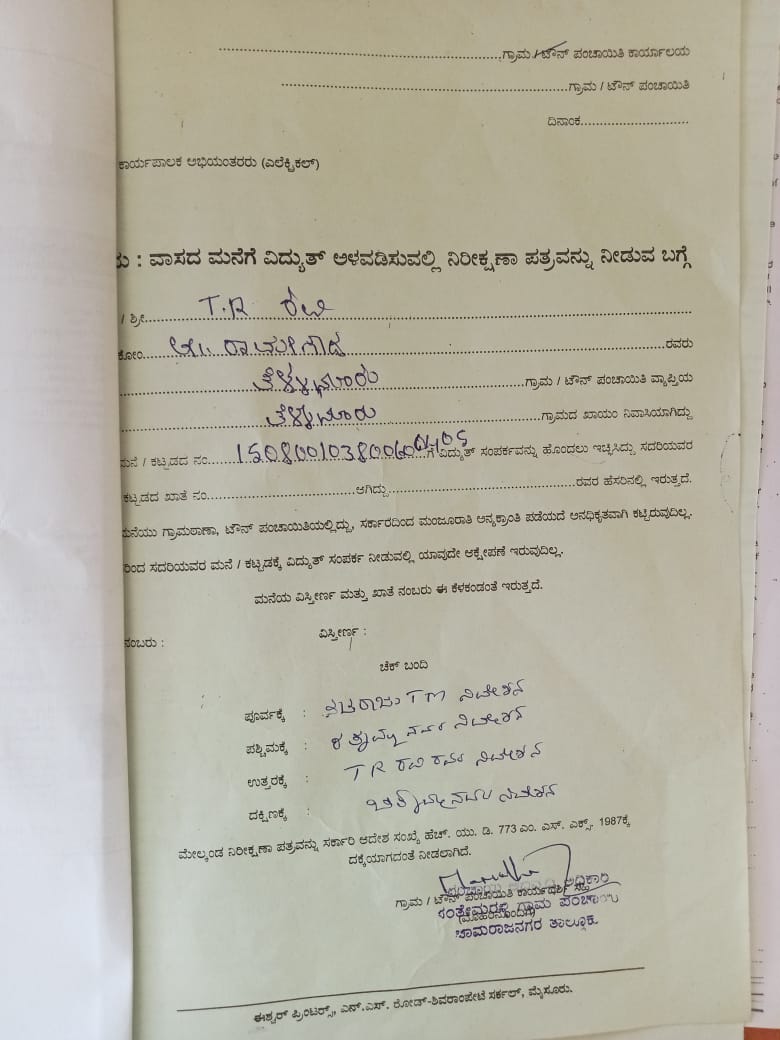 ........ಗ್ರಾಮ / ಟೌನ್ ಪಂಚಾಯಿತಿ ಕಾರ್ಯಾಲಯ
........ಗ್ರಾಮ / ಟೌನ್ ಪಂಚಾಯಿತಿ
ದಿನಾಂಕ........
ಕಾರ್ಯಪಾಲಕ ಅಭಿಯಂತರರು (ಎಲೆಕ್ಟ್ರಿಕಲ್)
: ವಾಸದ ಮನೆಗೆ ವಿದ್ಯುತ್ ಅಳವಡಿಸುವಲ್ಲಿ ನಿರೀಕ್ಷಣಾ ಪತ್ರವನ್ನು ನೀಡುವ ಬಗ್ಗೆ
/ ಶ್ರೀ.... T.R ರವಿ
ಕೋಂ.... ರಾಮೇಗೌಡ ........ರವರು
ತೆಳ್ಳನೂರು ........ಗ್ರಾಮ / ಟೌನ್ ಪಂಚಾಯಿತಿ ವ್ಯಾಪ್ತಿಯ
ತೆಳ್ಳನೂರು ........ಗ್ರಾಮದ ಖಾಯಂ ನಿವಾಸಿಯಾಗಿದ್ದು
ಮನೆ / ಕಟ್ಟಡದ ನಂ.... ವಿದ್ಯುತ್ ಸಂಪರ್ಕವನ್ನು ಹೊಂದಲು ಇಚ್ಛಿಸಿದ್ದು ಸದರಿಯವರ
ಕಟ್ಟಡದ ಖಾತೆ ನಂ........ಆಗಿದ್ದು........ರವರ ಹೆಸರಿನಲ್ಲಿ ಇರುತ್ತದೆ.
ಮನೆಯು ಗ್ರಾಮಠಾಣಾ, ಟೌನ್ ಪಂಚಾಯಿತಿಯಲ್ಲಿದ್ದು, ಸರ್ಕಾರದಿಂದ ಮಂಜೂರಾತಿ ಅನ್ಯಕ್ರಾಂತಿ ಪಡೆಯದೆ ಅನಧಿಕೃತವಾಗಿ ಕಟ್ಟಿರುವುದಿಲ್ಲ.
ರಿಂದ ಸದರಿಯವರ ಮನೆ / ಕಟ್ಟಡಕ್ಕೆ ವಿದ್ಯುತ್ ಸಂಪರ್ಕ ನೀಡುವಲ್ಲಿ ಯಾವುದೇ ಆಕ್ಷೇಪಣೆ ಇರುವುದಿಲ್ಲ.
ಮನೆಯ ವಿಸ್ತೀರ್ಣ ಮತ್ತು ಖಾತೆ ನಂಬರು ಈ ಕೆಳಕಂಡಂತೆ ಇರುತ್ತದೆ.
ನಂಬರು : ವಿಸ್ತೀರ್ಣ :
ಚೆಕ್ ಬಂದಿ
ಪೂರ್ವಕ್ಕೆ : TM ನಿವೇಶನ
ಪಶ್ಚಿಮಕ್ಕೆ : ನಿವೇಶನ
ಉತ್ತರಕ್ಕೆ : T R ರವಿ ರವರ ನಿವೇಶನ
ದಕ್ಷಿಣಕ್ಕೆ : ನಿವೇಶನ
ಮೇಲ್ಕಂಡ ನಿರೀಕ್ಷಣಾ ಪತ್ರವನ್ನು ಸರ್ಕಾರಿ ಆದೇಶ ಸಂಖ್ಯೆ ಹೆಚ್. ಯು. ಡಿ. 773 ಎಂ. ಎಸ್. ಎಕ್ಸ್. 1987ಕ್ಕೆ
ದಕ್ಕೆಯಾಗದಂತೆ ನೀಡಲಾಗಿದೆ.
ಗ್ರಾಮ / ಟೌನ್ ಪಂಚಾಯಿತಿ ಕಾರ್ಯದರ್ಶಿ ಸಹಿ
(ಮೊಹರಿನೊಂದಿಗೆ)
ಗ್ರಾಮ ಪಂಚಾ
ಚಾಮರಾಜನಗರ ತಾಲ್ಲೂಕು
ಈಶ್ವರ್ ಪ್ರಿಂಟರ್ಸ್, ಎನ್.ಎಸ್. ರೋಡ್-ಶಿವರಾಂಪೇಟೆ ಸರ್ಕಲ್, ಮೈಸೂರು.